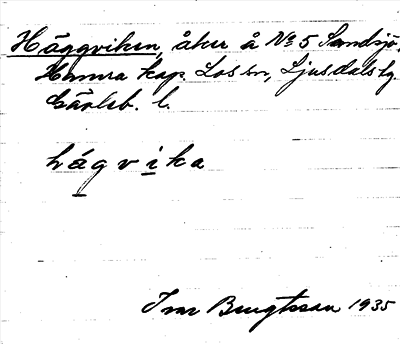 Häggviken, åker å No 5 Sandsjö,
Hamra kap. Los sn, Ljusdals tg.
Gävleb. l.
hägvika
Ivar Bengtsson 1935